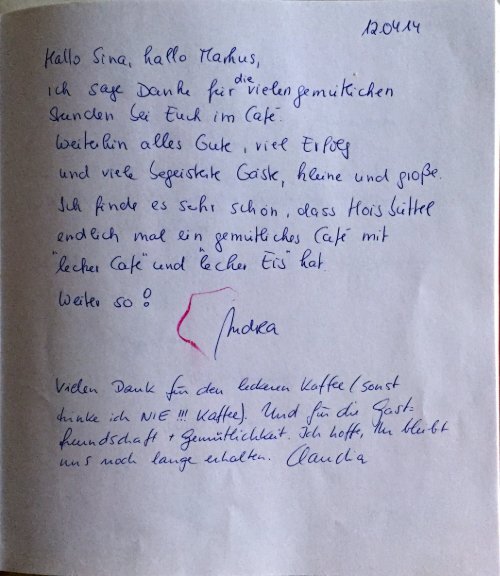 12.04.14
Hallo Sina, hallo Markus,
ich sage Danke für die vielen gemütlichen
Stunden bei Euch im Café.
Weiterhin alles Gute, viel Erfolg
und viele begeisterte Gäste, kleine und große.
Ich finde es sehr schön, dass Hoisbüttel
endlich mal ein gemütliches Café mit
"lecker Café" und "lecker Eis" hat.
Weiter so!
Andrea
Vielen Dank für den leckeren Kaffee (sonst
trinke ich NIE !!! Kaffee). Und für die Gast-
freundschaft + Gemütlichkeit. Ich hoffe, Ihr bleibt
uns noch lange erhalten. Claudia